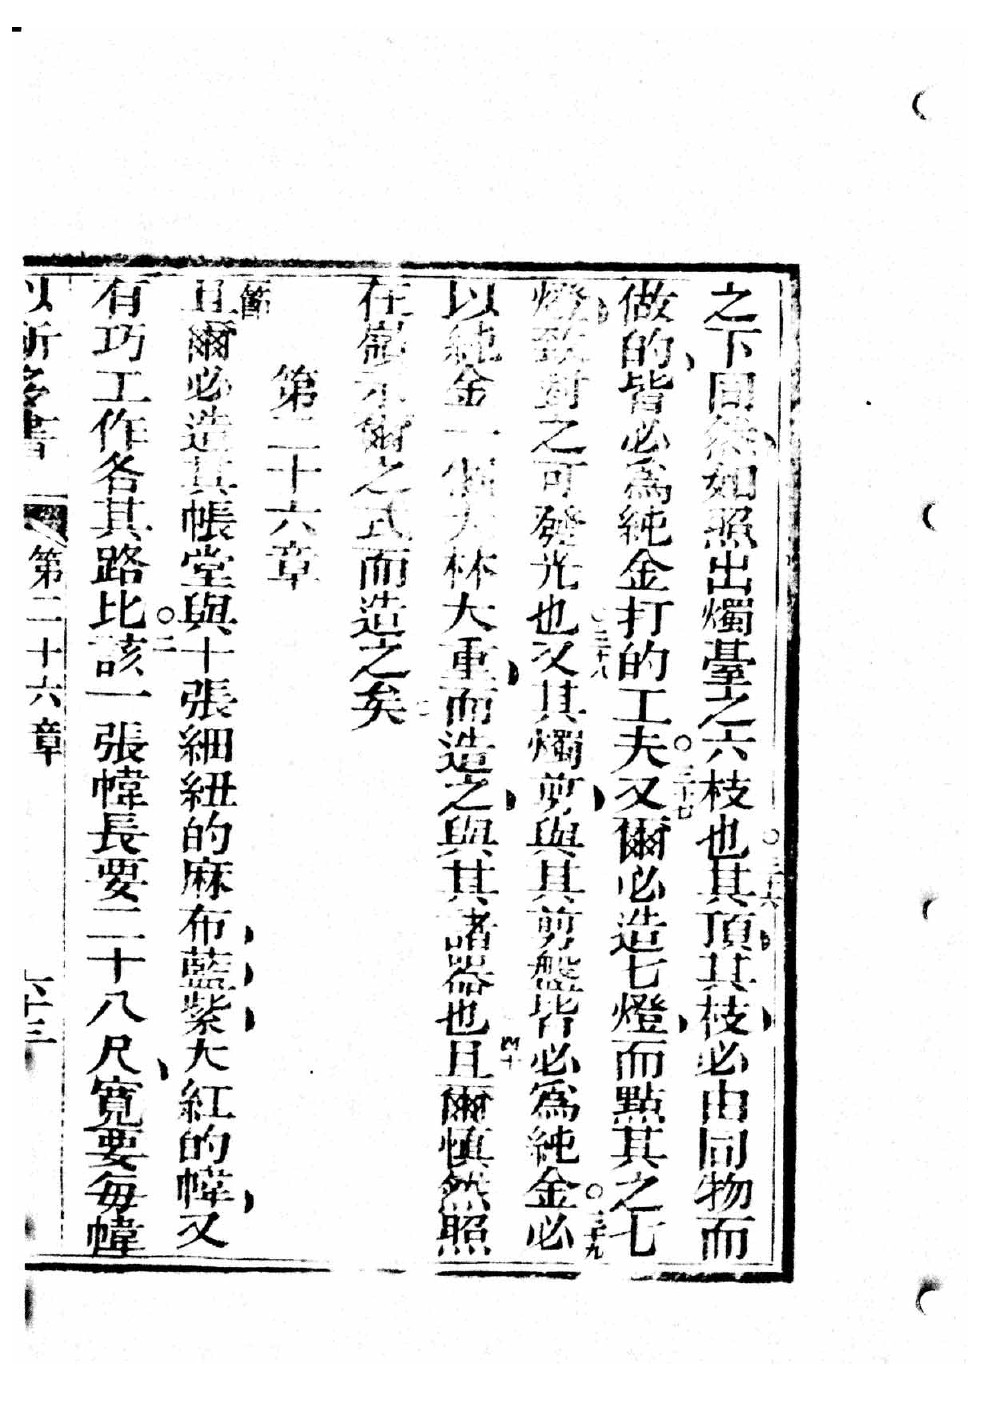 之下同然如照出燭臺之六枝也○三十六其頂其枝必由同物而
做的皆必為純金打的工夫○三十七又爾必造七燈而點其之七
燈致對之可發光也○三十八又其燭剪與其剪盤皆必為純金○三十九必
以純金一個大林大重而造之與其諸器也四十且爾慎然照
在嶺示爾之式而造之矣
第二十六章
節且爾必造其帳堂與十張細紐的麻布藍紫大紅的幃又
有巧工作各其路比○二該一張幃長要二十八尺寬要每幃
以所多書 第二十六章 六十三